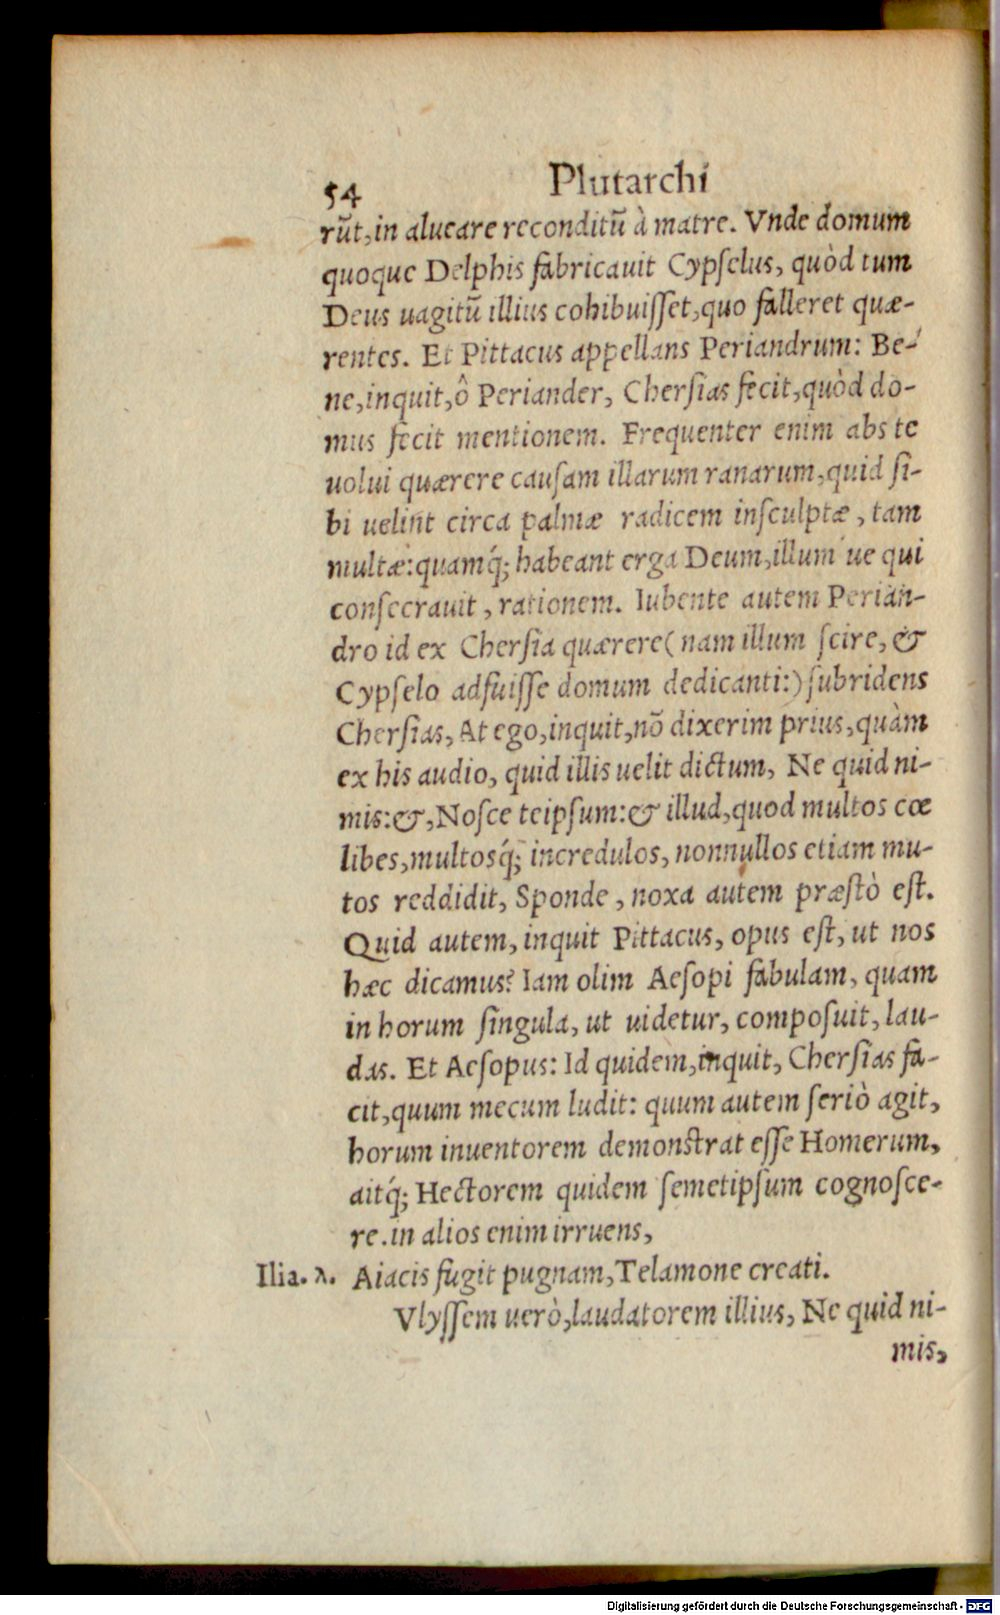 54 Plutarchi
rũt, in alueare reconditũ à matre. Vnde domum
quoque Delphis fabricauit Cypſelus, quòd tum
Deus uagitũ illius cohibuiſſet, quo falleret quæ-
rentes. Et Pittacus appellans Periandrum: Be-
ne, inquit, ô Periander, Cherſias fecit, quòd do-
mus fecit mentionem. Frequenter enim abs te
uolui quærere cauſam illarum ranarum, quid ſi-
bi uelint circa palmæ radicem inſculptæ, tam
multæ: quamq́; habeant erga Deum, illum ue qui
conſecrauit, rationem. Iubente autem Perian-
dro id ex Cherſia quærere (nam illum ſcire, &
Cypſelo adfuiſſe domum dedicanti:) ſubridens
Cherſias, At ego, inquit, nõ dixerim prius, quàm
ex his audio, quid illis uelit dictum, Ne quid ni-
mis: &, Noſce teipſum: & illud, quod multos cœ
libes, multosq́; incredulos, nonnullos etiam mu-
tos reddidit, Sponde, noxa autem præſtò eſt.
Quid autem, inquit Pittacus, opus eſt, ut nos
hæc dicamus? Iam olim Aeſopi fabulam, quam
in horum ſingula, ut uidetur, compoſuit, lau-
das. Et Aeſopus: Id quidem, inquit, Cherſias fa-
cit, quum mecum ludit: quum autem ſeriò agit,
horum inuentorem demonſtrat eſſe Homerum,
aitq́; Hectorem quidem ſemetipſum cognoſce-
re. in alios enim irruens,
Ilia. λ. Aiacis fugit pugnam, Telamone creati.
Vlyſſem uerò, laudatorem illius, Ne quid ni-
mis,
Digitalisierung gefördert durch die Deutsche Forschungsgemeinschaft - DFG